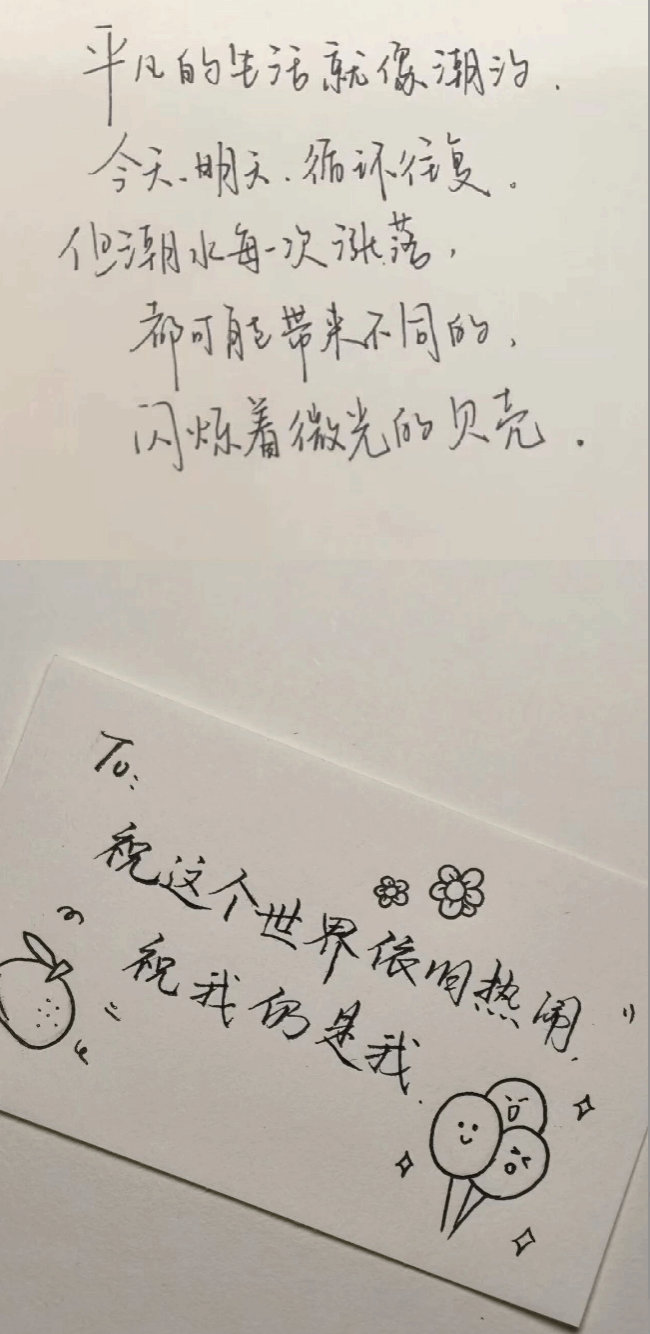 平凡的生活就像潮汐.
今天、明天、循环往复。
但潮水每一次涨落,
都可能带来不同的,
闪烁着微光的贝壳.
To:
祝这个世界依旧热闹,
祝我仍是我.